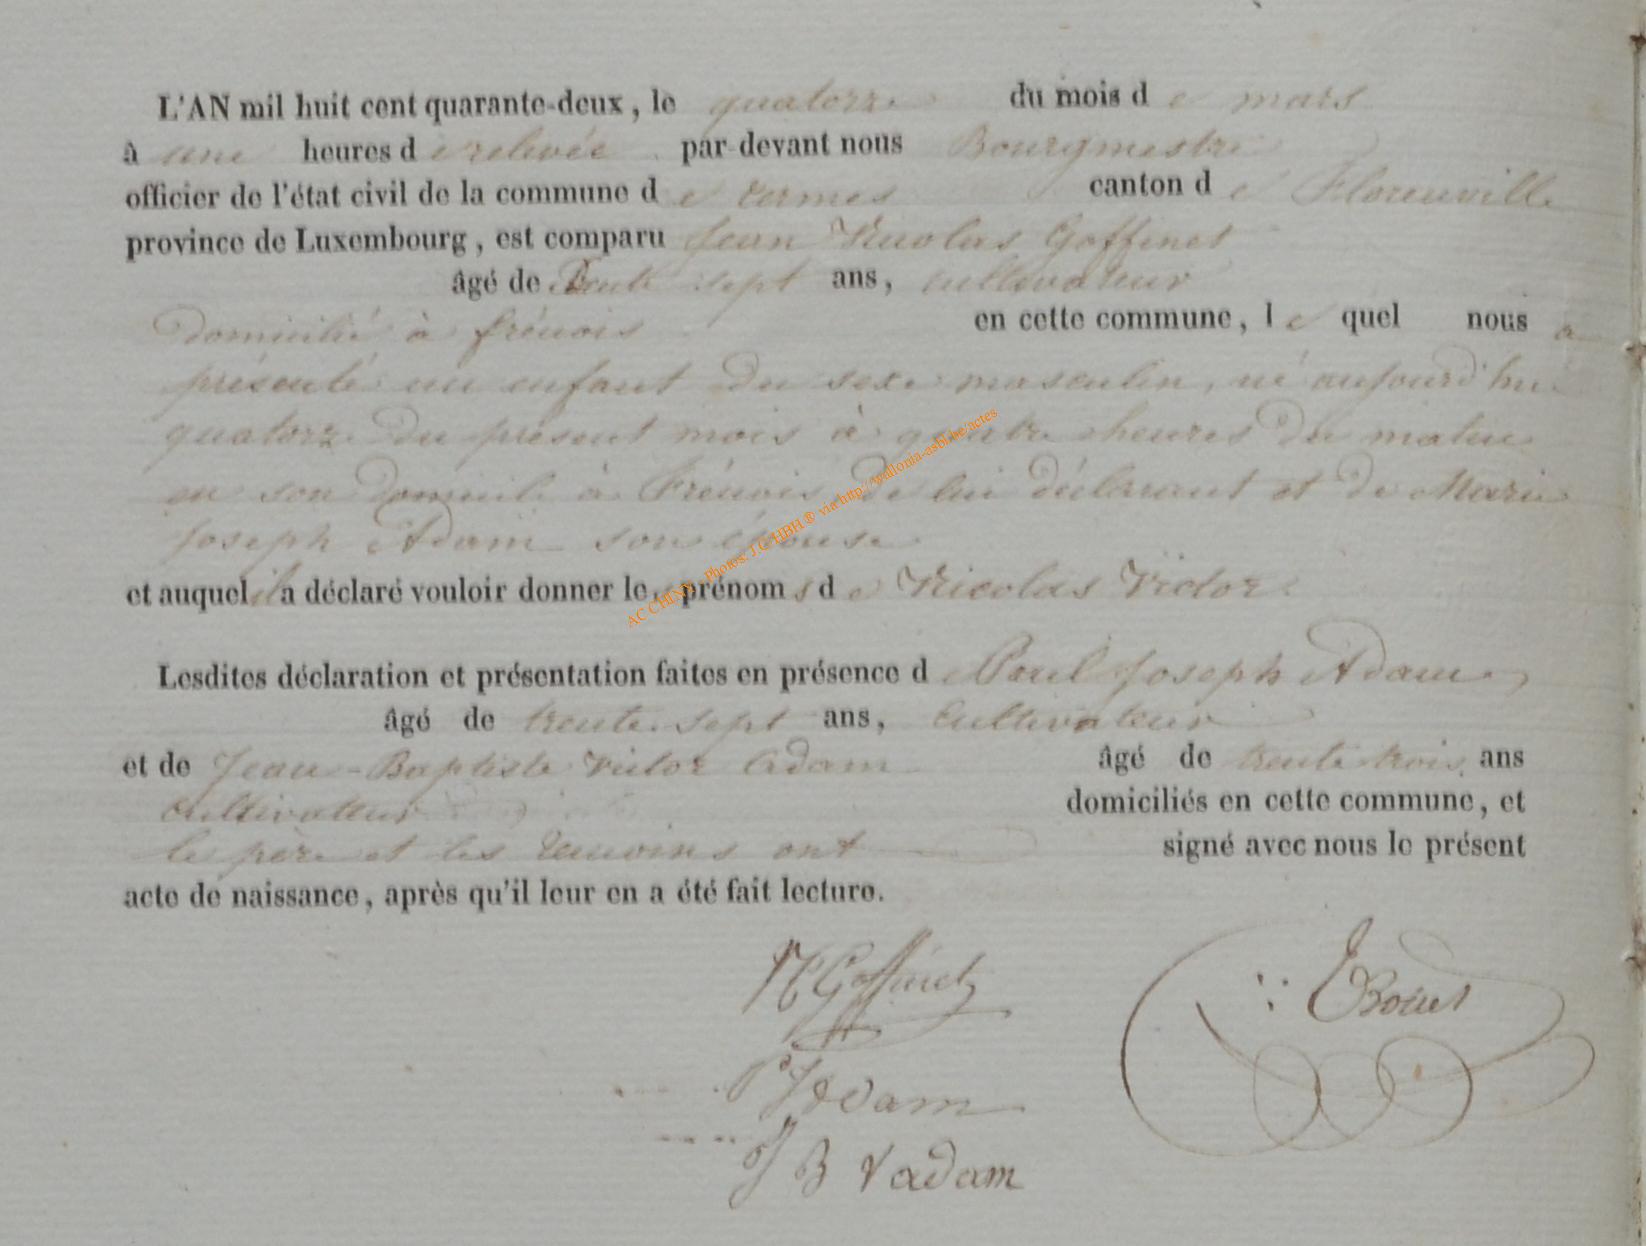 L'AN mil huit cent quarante-deux, le quatorze du mois de mars
à une heures de relevée par-devant nous Bourgmestre
officier de l'état civil de la commune de termes canton de Florenville
province de Luxembourg, est comparu Jean Nicolas Goffinet
âgé de trente sept ans, cultivateur
domicilié à frénois en cette commune, lequel nous a
présenté un enfant du sexe masculin, né aujourd'hui
quatorze du présent mois à quatre heures du matin
en son domicile à Frénois de lui déclarant et de Marie
Joseph Adam son épouse
et auquel il a déclaré vouloir donner les prénoms de Nicolas Victor
Lesdites déclaration et présentation faites en présence de Paul Joseph Adam,
âgé de trente sept ans, Cultivateur
et de Jean-Baptiste Victor Adam âgé de trente trois ans
cultivateur domiciliés en cette commune, et
le père et les témoins ont signé avec nous le présent
acte de naissance, après qu'il leur en a été fait lecture.
N Goffinet
PJ Adam
J B V adam
AC CHINY - Photos: J.C HBH ® via http://wallonia-asbl.be/actes